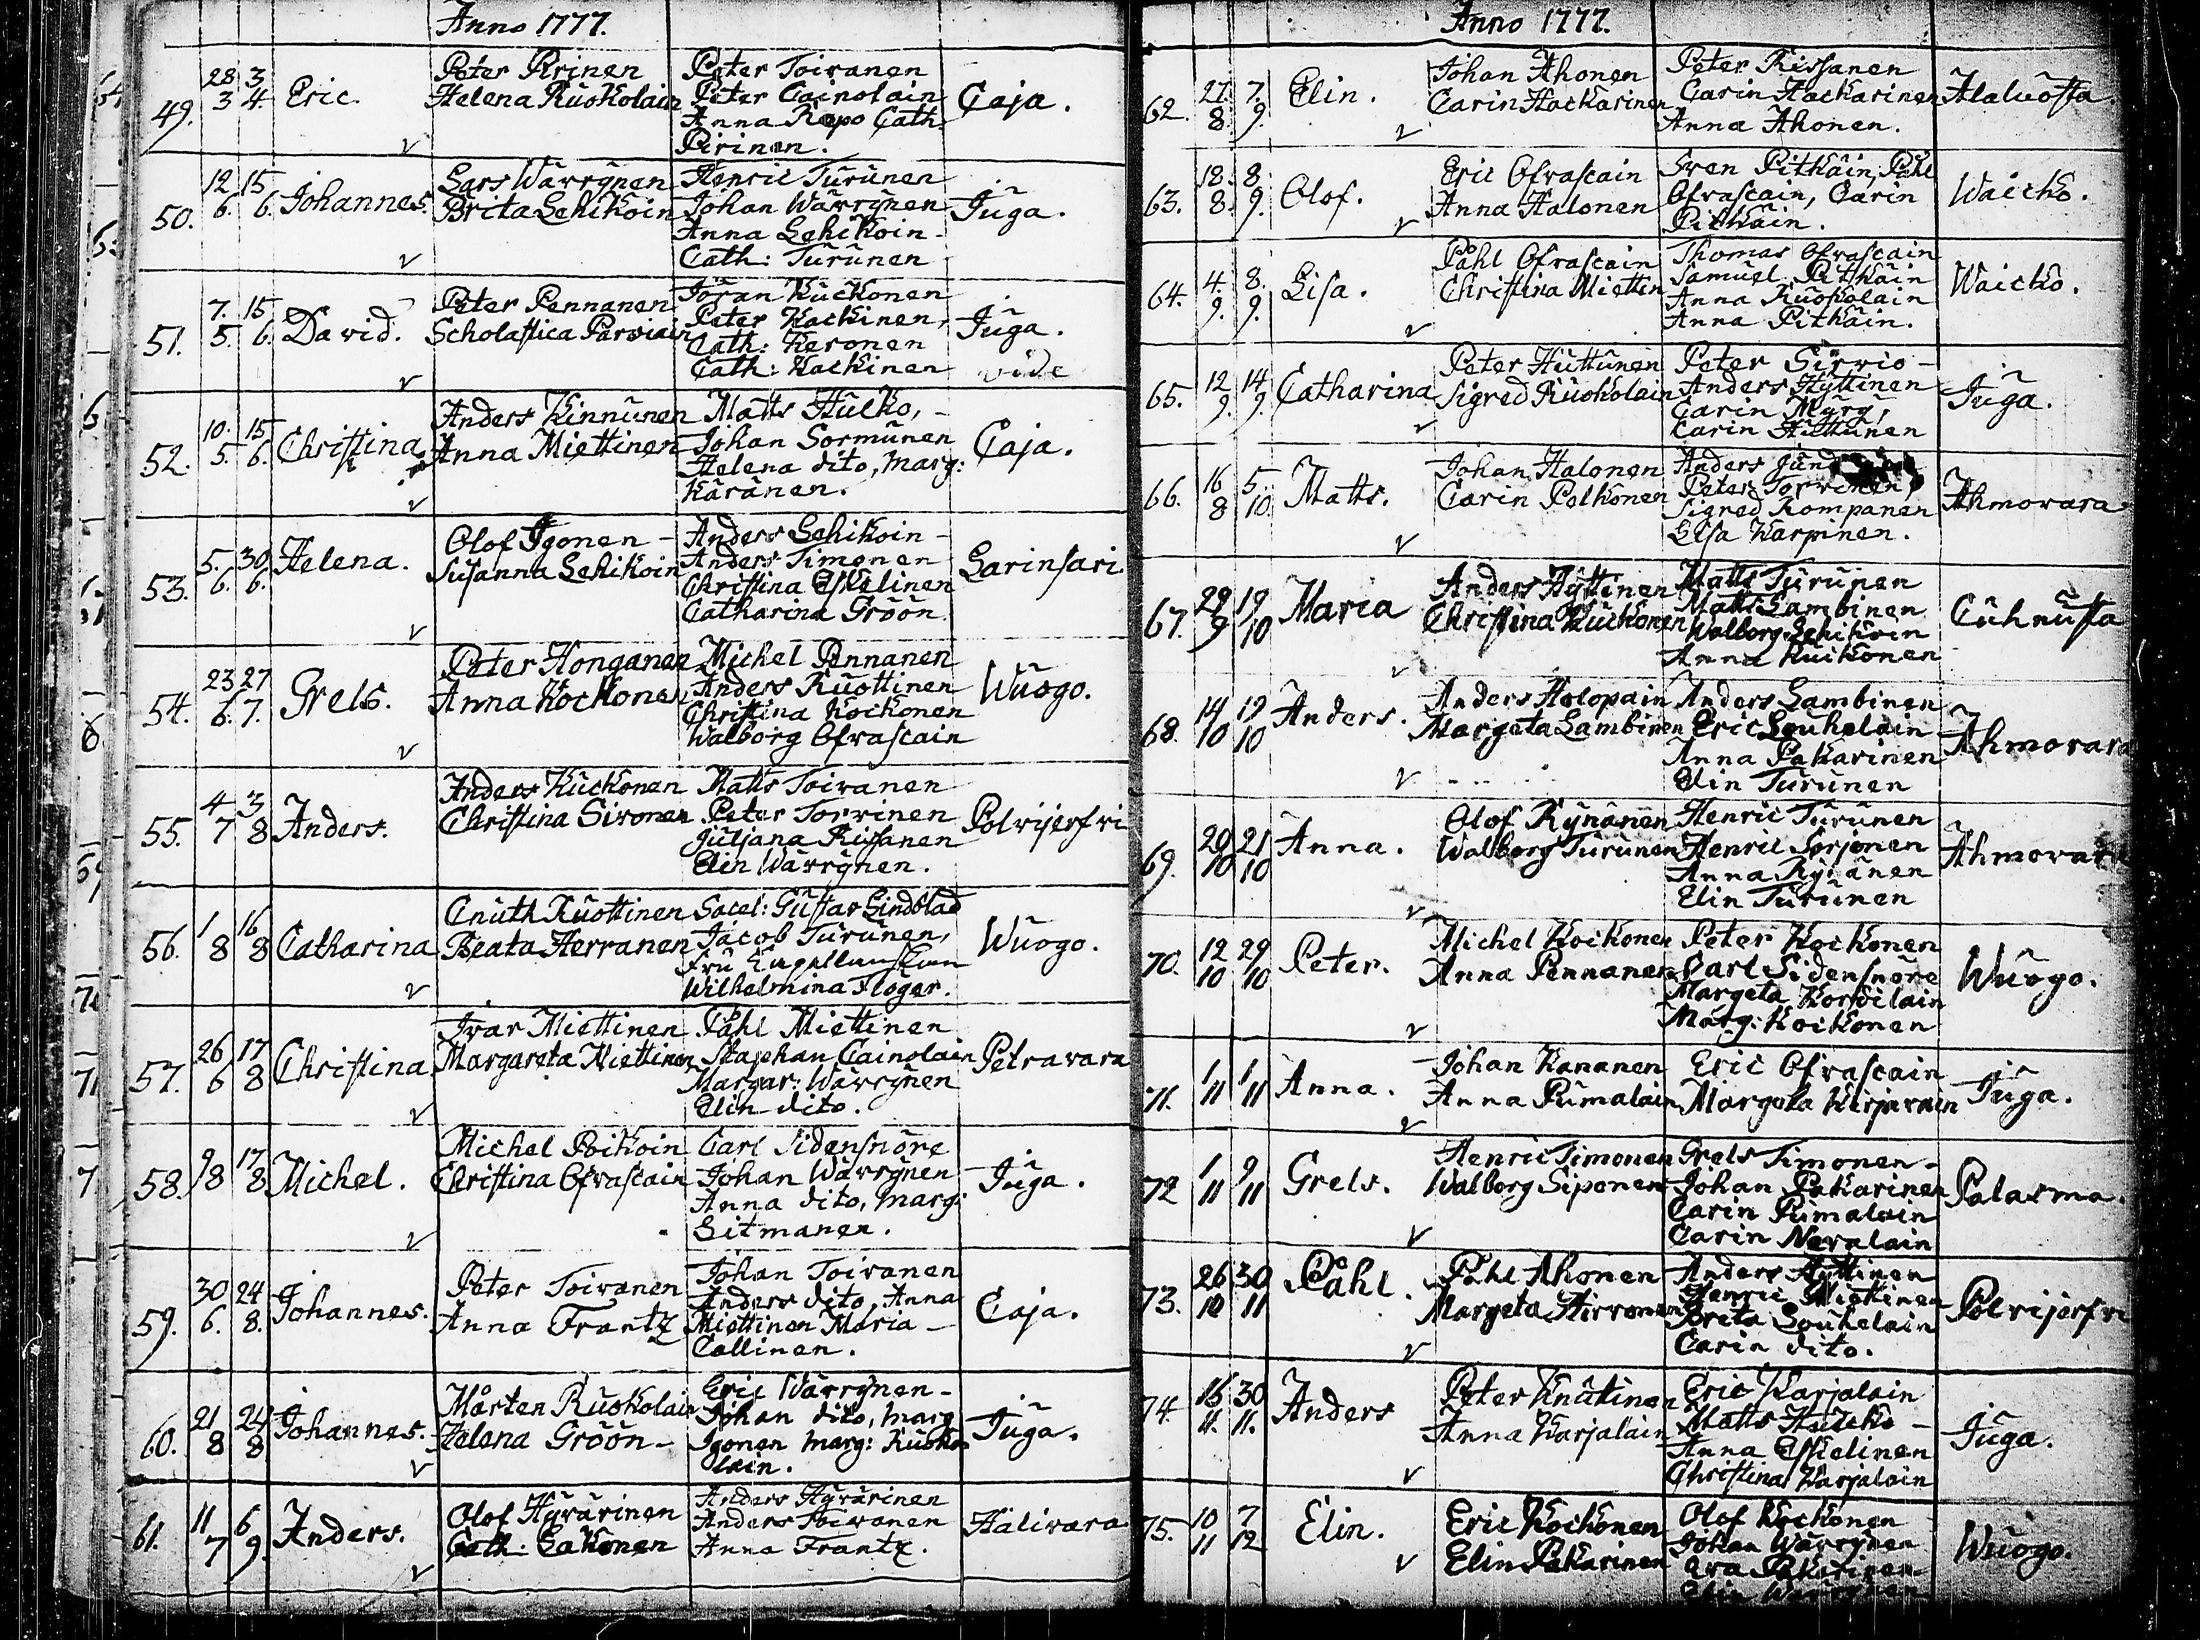 Anno 1777.
49. 28/3 3/4 Eric. Peter Pirinen Peter Toivanen Caja.
Helena Ruokolain Peter Cainolain
Anna Repo Cath:
Pirinen.
50. 12/6. 15/6. Johannes. Lars Wärrÿnen Henric Turunen Juga.
Brita Lehikoin Johan Wärrÿnen
Anna Lehikoin
Cath: Turunen
51. 7./5. 15/6. David. Peter Pennanen Jöran Kuckonen Juga.
Scholastica Parviain Peter Kackinen, vide
Cath: Keronen
Cath: Kackinen
52. 10./5. 15/6. Christina Anders Kinnunen Matts Hulko, Caja.
Anna Miettinen Johan Sormunen
Helena dito, Marg:
Käränen.
53. 5./6. 30/6. Helena. Olof Igonen Anders Lehikoin Larinsari
Susanna Lehikoin Anders Timonen
Christina Eskelinen
Catharina Gröön
54. 23/6. 27/7. Grels. Peter Honganen Michel Pennanen Wuogo.
Anna Kockonen Anders Kuottinen
Christina Kockonen
Walborg Ofvascain
55. 4/7 3/8 Anders. Anders Kuckonen Matts Toivanen Polvijerfvi
Christina Sivonen Peter Torvinen
Juljana Rissanen
Elin Wärrÿnen.
56. 1/8 16/8 Catharina Cnuth Kuottinen Sacel: Gustav Lindblad Wuogo.
Beata Herranen Jacob Turunen,
Fru
Wilhelmina Floger.
57. 26/6 17/8 Christina Ivar Miettinen Påhl Miettinen Petravara
Margareta Miettinen Staphan Cainolain
Margar: Wärrÿnen
Elin dito.
58. 9/8 17/8 Michel. Michel Poikoin Carl Sidensnöre Juga.
Christina Ofvascain Johan Wärrÿnen
Anna dito, Marg:
Litmanen.
59. 30/6. 24/8. Johannes. Peter Toivanen Johan Toivanen Caja.
Anna Frantz Anders dito, Anna
Miettinen Maria
Collinen.
60. 21/8 24/8 Johannes. Mårten Ruokolain Eric Wärrÿnen Juga.
Helena Gröön Johan dito, Marg
Igonen Marg: Ruoko
lain.
61. 11/7 6/9. Anders. Olof Hÿvärinen Anders Hÿvärinen Halivara
Cath: Lakonen Anders Toivanen
Anna Frantz.
Anno 1777.
62. 27./8. 7./9. Elin. Johan Ahonen Peter Rissanen Alaluosta.
Carin Hackarinen Carin Hackarinen
Anna Ahonen.
63. 18./8. 8./9. Olof. Eric Ofvascain Sven Pitkäin, Påhl Waicko.
Anna Halonen Ofvascain, Carin
Pitkäin.
64. 4./9. 8./9. Lisa. Påhl Ofvascain Thomas Ofvascain Waicko.
Christina Miettin Samuel Pitkäin
Anna Ruokolain
Anna Pitkäin.
65. 12/9. 14/9. Catharina Peter Huttunen Peter Sirviö Juga.
Sigred Ruokolain Anders Hÿttinen
Carin Mÿrÿ,
Carin Huttunen
66. 16/8 5./10. Matts. Johan Halonen Anders Ahmovara
Carin Pelkonen Peter Torvinen,
Sigred Kompanen
Lisa Karpinen.
67. 29/9 19/10 Maria Anders Hÿttinen Matts Turunen Cuhnusta
Christina Kuckonen Matts Lambinen
Walborg Lehikoin
Anna Kuikonen
68. 14/10 19/10 Anders. Anders Holopain Anders Lambinen Ahmovara
Margeta Lambinen Eric Louhelain
Anna Pakarinen
Elin Turunen
69. 20/10 21/10 Anna. Olof Rÿnänen Henric Turunen Ahmovara
Walborg Turunen Henric Sorjonen
Anna Rÿnänen
Elin Turunen
70. 12/10 29/10 Peter. Michel Kockonen Peter Kockonen Wuogo.
Anna Pennanen Carl Sidensnöre
Margeta Korpilain
Marg: Kockonen
71. 1/11 1/11 Anna. Johan Kananen Eric Ofvascain Juga.
Anna Pumalain Margeta
72 1/11 9/11 Grels. Henric Timonen Grels Timonen Palasma.
Walborg Siponen Johan Pakarinen
Carin Pumalain
Carin Nevalain
73. 26/10 30/11 Påhl. Påhl Ahonen Anders Hÿttinen Polvijerfvi
Margeta Hirvonen Henric Miettinen
Breta Louhelain
Carin dito.
74. 15/11. 30/11. Anders Peter Knutinen Eric Karjalain Juga.
Anna Karjalain Matts
Anna Eskelinen
Christina Karjalain
75. 10/11 7/12 Elin. Eric Kockonen Olof Kockonen Wuogo.
Elin Pakarinen Johan Wärrÿnen
Eva Pakarinen
Elin Wärrÿnen